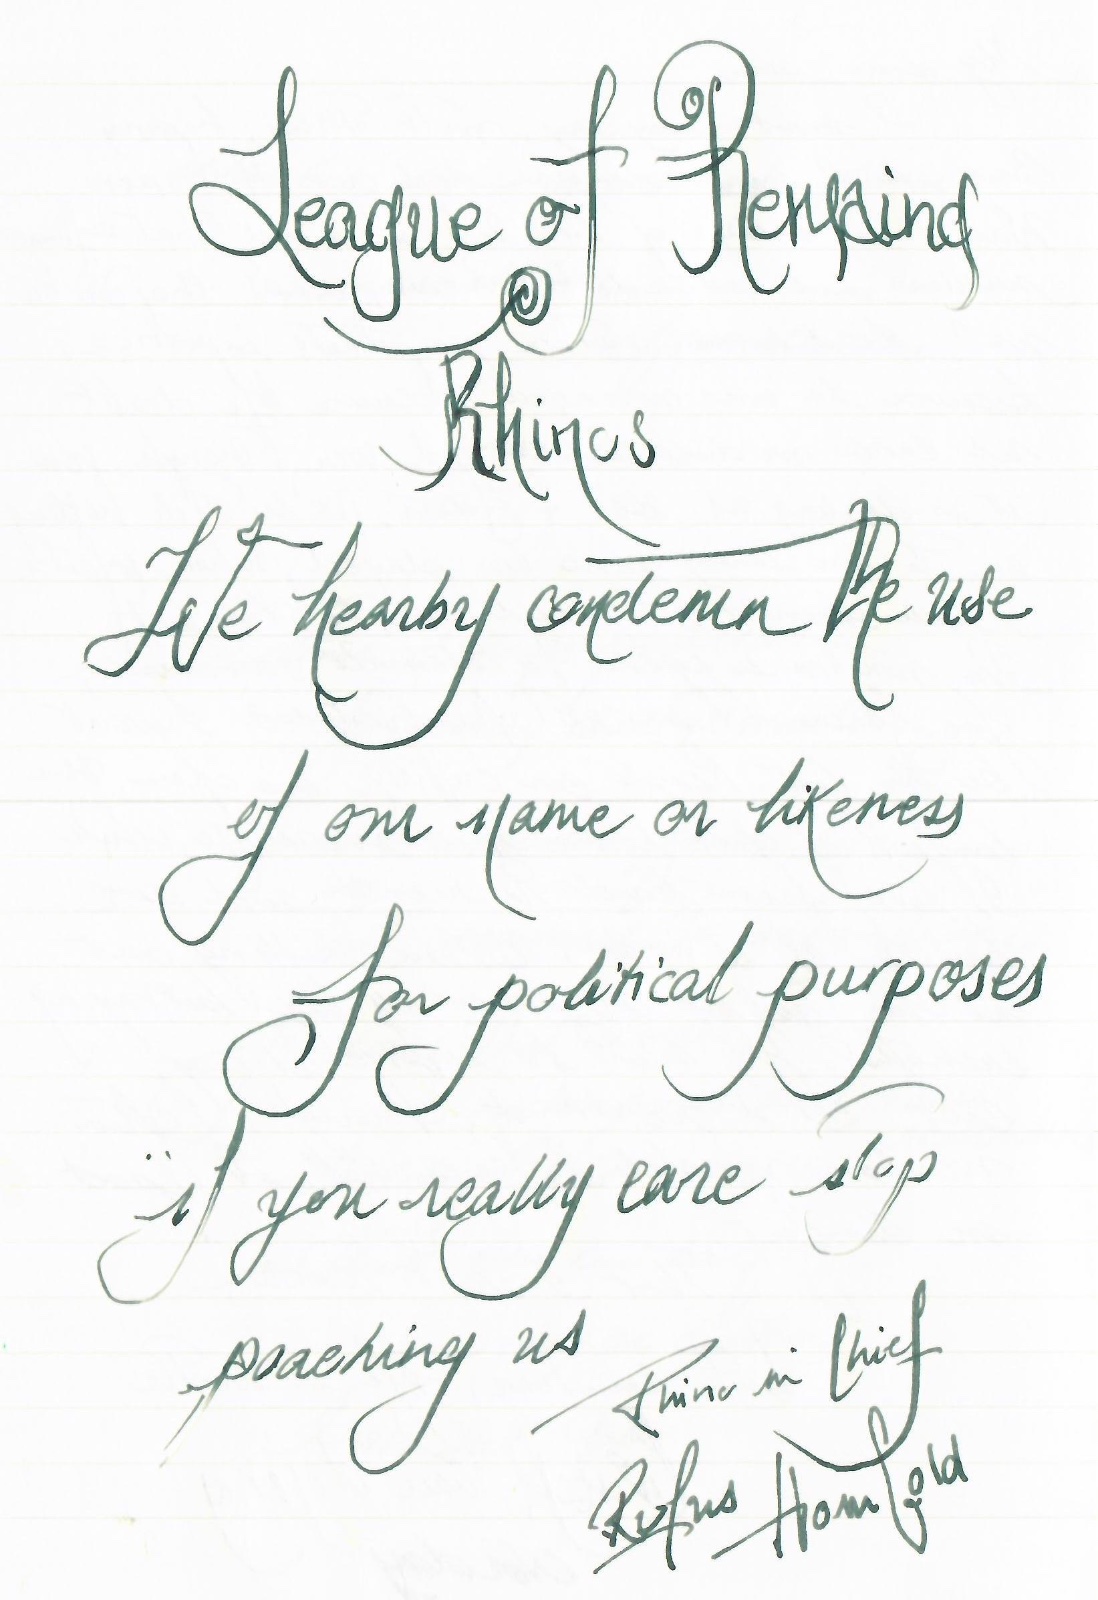 League of Remaind
Rhinos
We hearby condemn the use
of our name or likeness
for political purposes
if you really care stop
poaching us
Rhino in Chief
Rufus Horn Gold